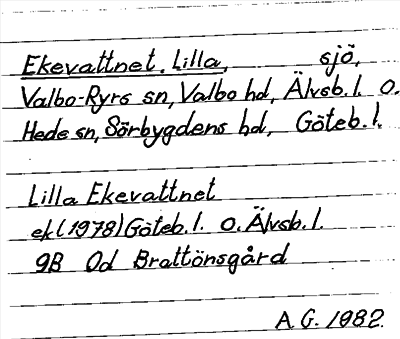 Ekevattnet, Lilla, sjö,
Valbo-Ryrs sn, Valbo hd, Älvsb. l. o.
Hede sn, Sörbygdens hd, Göteb. l.
Lilla Ekevattnet
ek (1978) Göteb. l. o. Älvsb. l.
9B 0d Brattönsgård
A. G. 1982.